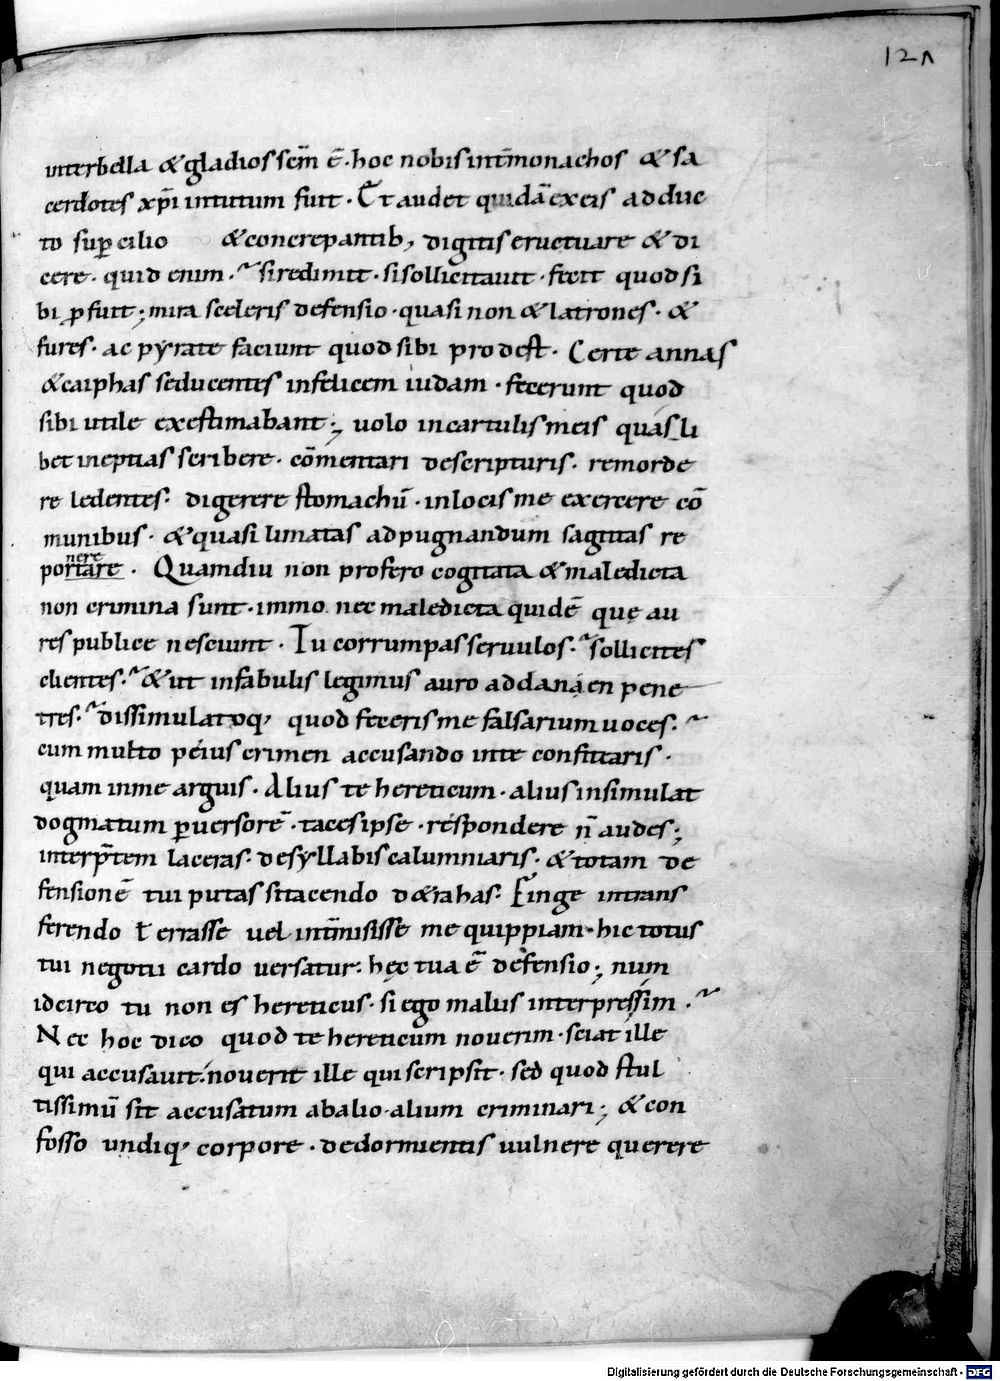 121
inter bella & gladios sem̄ ē· hoc nobis int̄ monachos & sa
cerdotes xp̄i intutum fuit · Et audet quidā ex eis adduc
to sup̱ cilio & concrepantib; digitis eructuare & di
cere · quid enim · si redimit · si sollicitauit · fecit quod si
bi ꝓfuit; mira sceleris defensio · quasi non & latrones · &
fures · ac pẏrate faciunt quod sibi prodest · Certe annas
& caiphas seducentes infelicem iudam · fecerunt quod
sibi utile exestimabant; uolo in cartulis meis quas li
bet ineptias scribere · cōmentari de scripturis · remorde
re ledentes · digerere stomachū · in locis me exercere cō
munibus · & quasi limatas ad pugnandum sagittas re
nere
portare · Quamdiu non profero cogitata & maledicta
non crimina sunt · immo nec maledicta quidē quę au
res publice nesciunt · Tu corrumpas seruulos · sollicites
clientes · & ut in fabulis legimus auro ad danaen pene
tres · dissimulatoq; quod feceris me falsarium uoces ·
cum multo peius crimen accusando in te confitearis ·
quam in me arguis · Alius te hereticum · alius insimulat
dogmatum ꝑuersorē · taces ipse · respondere n̄ audes;
interp̄tem laceras · de syllabis calumniaris · & totam de
fensionē tui putas si tacendo d&rahas · Finge in trans
ferendo ł errasse uel int̄misisse me quippiam · hic totus
tui negotii cardo uersatur · hęc tua ē defensio; num
idcirco tu non es hereticus · si ego malus interpres sim ·
Nec hoc dico quod te hereticum nouerim · sciat ille
qui accusauit · nouerit ille qui scripsit · sed quod stul
tissimū sit accusatum ab alio · alium criminari; & con
fosso undiq; corpore · de dormientis uulnere querere
Digitalisierung gefördert durch die Deutsche Forschungsgemeinschaft - DFG